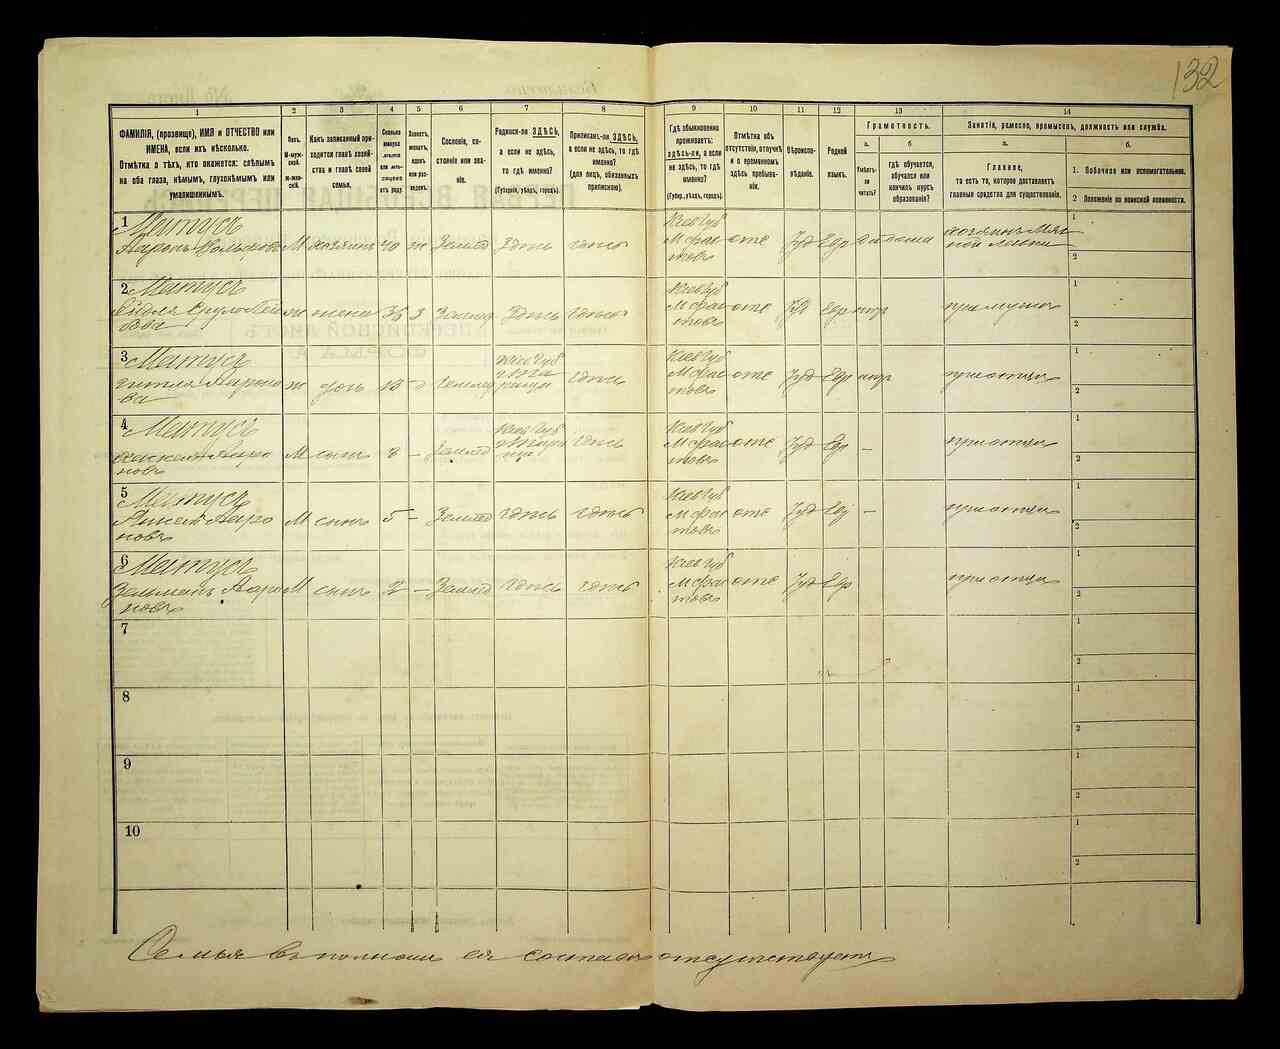 132
1
2
3
4
5
6
7
8
9
10
11
12
13
14
ФАМИЛІЯ, (прозвище), ИМЯ и ОТЧЕСТВО или
ИМЕНА, если ихъ нѣсколько.
Отмѣтка о тѣхъ, кто окажется: слѣпымъ
на оба глаза, нѣмымъ, глухонѣмымъ или
умалишеннымъ.
Полъ.
М-муж-
ской.
ж-жен-
скій.
Какъ записанный при-
ходится главѣ хозяй-
ства и главѣ своей
семьи.
Сколько
минуло
лѣтъ
или мѣ-
сяцевъ
отъ роду.
Холостъ,
женатъ,
вдовъ
или раз-
веденъ.
Сословіе, со-
стояніе или зва-
ніе.
Родился-ли ЗДѢСЬ,
а если не здѣсь,
то гдѣ именно?
(Губернія, уѣздъ, городъ).
Приписанъ-ли ЗДѢСЬ,
а если не здѣсь, то гдѣ
именно?
(для лицъ, обязанныхъ
припискою).
Гдѣ обыкновенно
проживаетъ:
здѣсь-ли, а если
не здѣсь, то гдѣ
именно?
(Губер., уѣздъ, городъ).
Отмѣтка объ
отсутствіи, отлучкѣ
и о временномъ
здѣсь пребыва-
ніи.
Вѣроиспо-
вѣданіе.
Родной
языкъ.
Грамотность.
а.
б
Умѣетъ-
ли
читать?
гдѣ обучается,
обучался или
кончилъ курсъ
образованія?
Занятіе, ремесло, промыселъ, должность или служба.
а.
б.
Главное,
то есть то, которое доставляетъ
главныя средства для существованія.
1. Побочное или вспомогательное.
2 Положеніе по воинской повинности.
1
Матусъ
Ааронъ
М хозяинъ 40 ж Землед здѣсь здѣсь
Кіев Губ
отс Іуд Евр да дома
хозяинъ
1
2
2
Матусъ
ж жена 36 з Землед Здѣсь здѣсь
Кіев Губ
отс Іуд Евр нѣтъ при мужѣ
1
2
3
Матусъ
ж дочь Землед
Кіев Губ
здѣсь
Кіев Губ
отс Іуд Евр нѣтъ при отцѣ
1
2
4
Матусъ
Ааро
новъ
М сынъ 8 – Землед
Кіев Губ
здѣсь
Кіев Губ
отс Іуд Евр – при отцѣ
1
2
5
Матусъ
Ааро
новъ
М сынъ 5 – Землед здѣсь здѣсь
Кіев Губ
отс Іуд Евр – при отцѣ
1
2
6
Матусъ
Зельманъ Ааро
новъ
М сынъ 2 – Землед здѣсь здѣсь
Кіев Губ
отс Іуд Евр при отцѣ
1
2
7
1
2
8
1
2
9
1
2
10
1
2
Семья въ полномъ ея составѣ отсутствуетъ